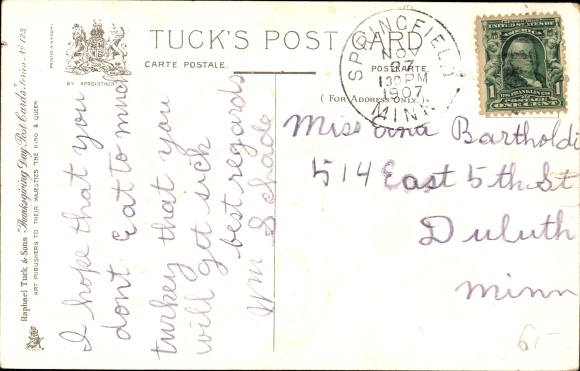 Raphael Tuck & Sons "Thanksgiving Day Post Cards" Series No 123.
ART PUBLISHERS TO THEIR MAJESTIES THE KING & QUEEN
PRINTED IN SAXONY
BY APPOINTMENT
TUCK'S POST CARD
CARTE POSTALE.
POSTKARTE.
( For Address Only.)
SPRINGFIELD
NOV
27
130 PM
1907
MINN.
AMERICA
FRANKLIN
POSTAGE
1 ONE CENT 1
I hope that you
dont Eat to much
turkey that you
will get sick
best regards
Wm Schade
Miss Bartholdi
514 East 5th St
Duluth
Minn
6-